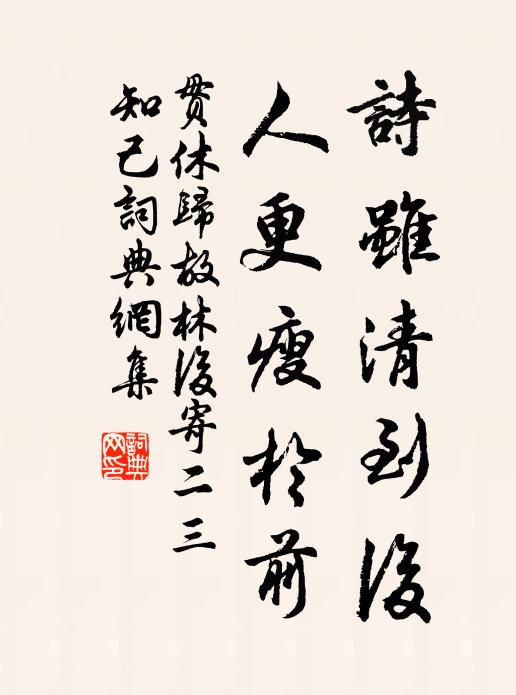 詩雖清到後
人更瘦於前
贯休歸故林後寄二三
知己詞典網集
詞典
网印